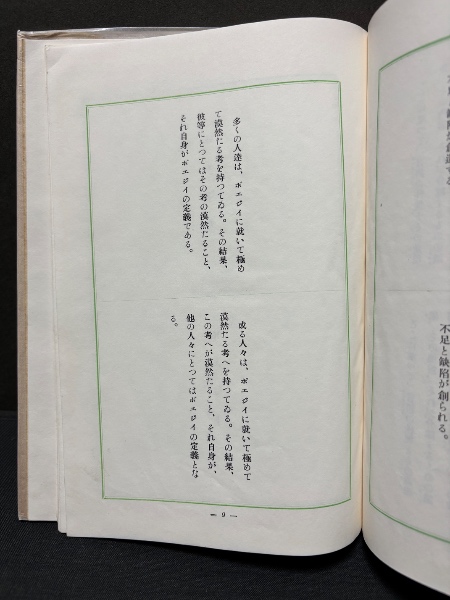 多くの人達は、ポエジイに就いて極め
て漠然たる考を持つてゐる。その結果、
彼等にとつてはその考の漠然たること、
それ自身がポエジイの定義である。
或る人々は、ポエジイに就いて極めて
漠然たる考へを持つてゐる。その結果、
この考へが漠然たること、それ自身が、
他の人々にとつてはポエジイの定義とな
る。
— 9 —
不足と缺陥が創られる。